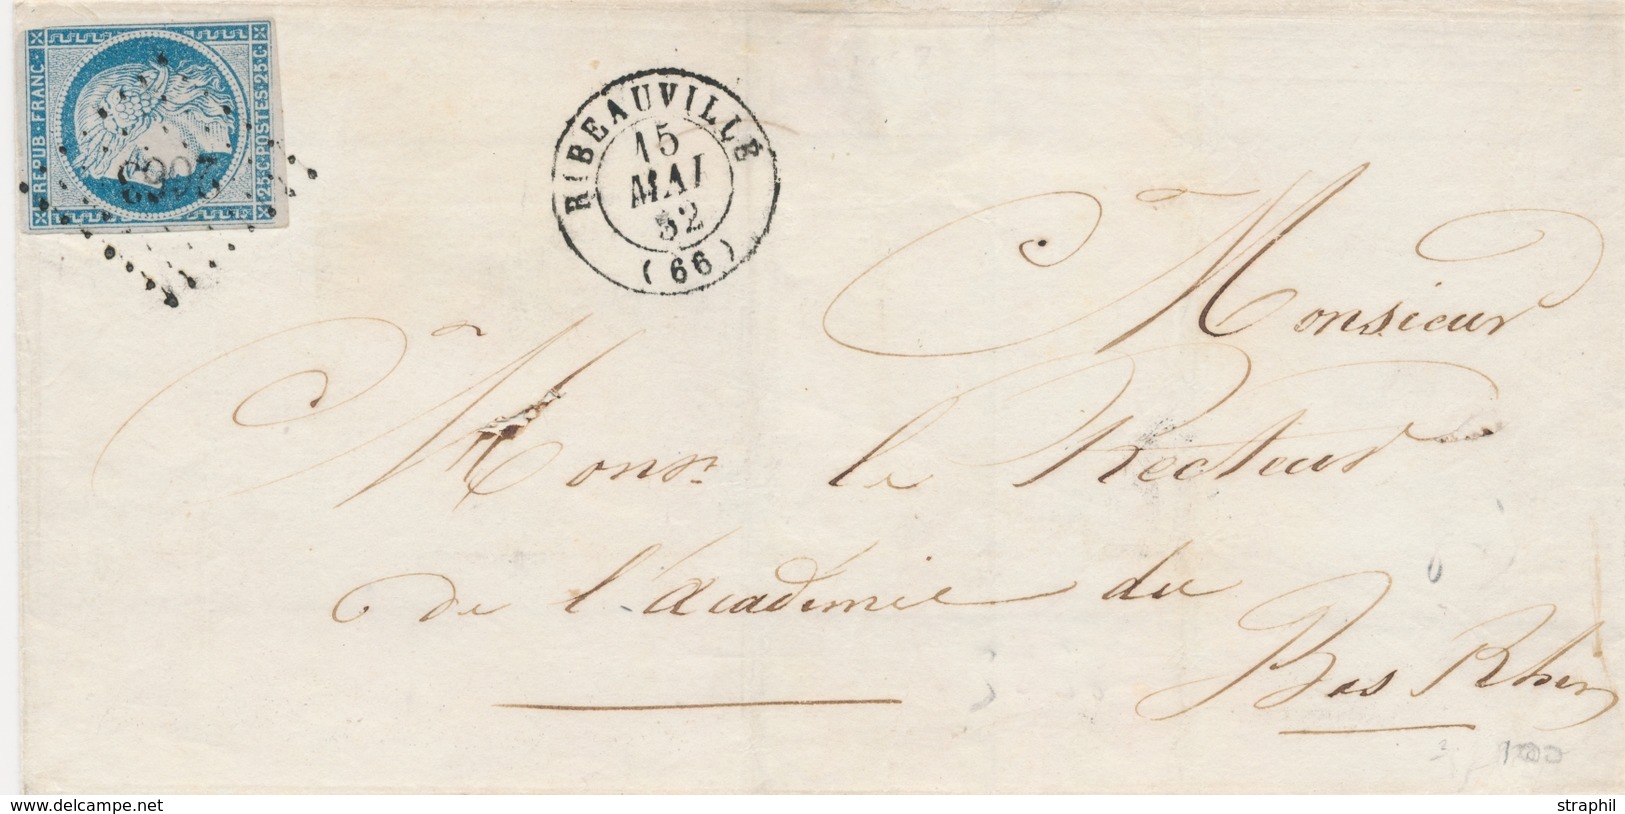 REPUB · FRANC ·
25 · C · POSTES · 25 · C ·
RIBEAUVILLÉ
15
MAI
52
( 66 )
Monsieur
Monsr le Recteur
de l'académie du
Bas Rhin
www.delcampe.net
straphil